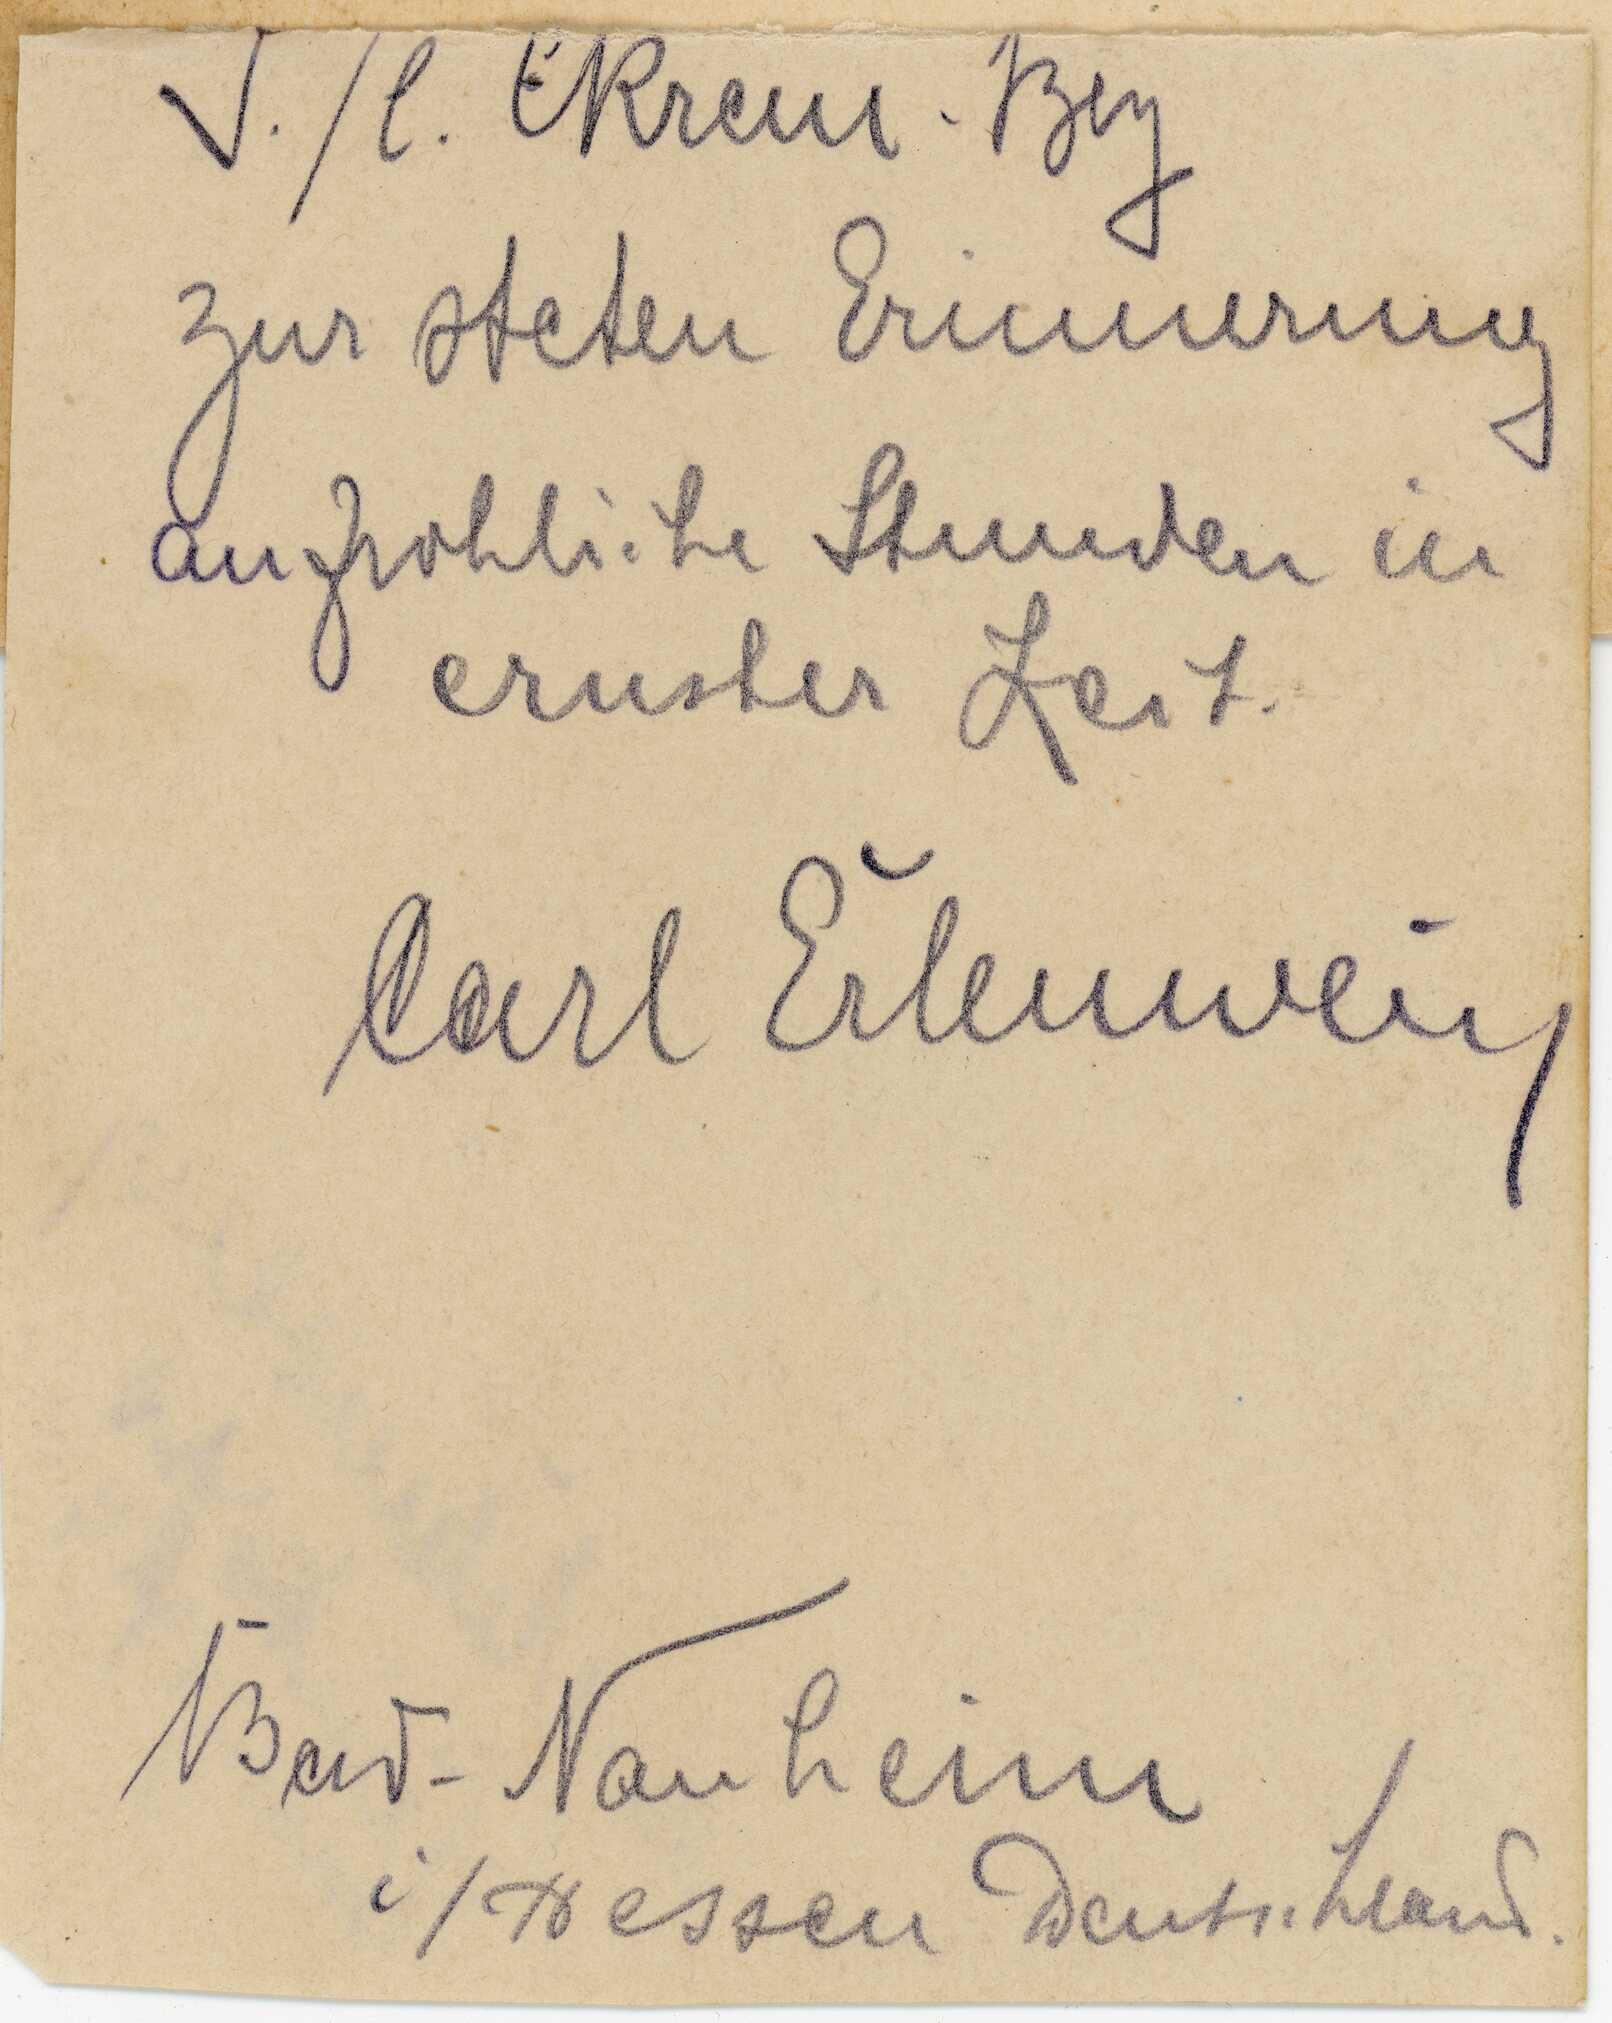 V. /l. Ekrem-Bey
zur steten Erinnerung
an fröhliche Stunden in
ernster Zeit.
Carl Erlenwein
Bad-Nauheim
i/Hessen Deutschland.